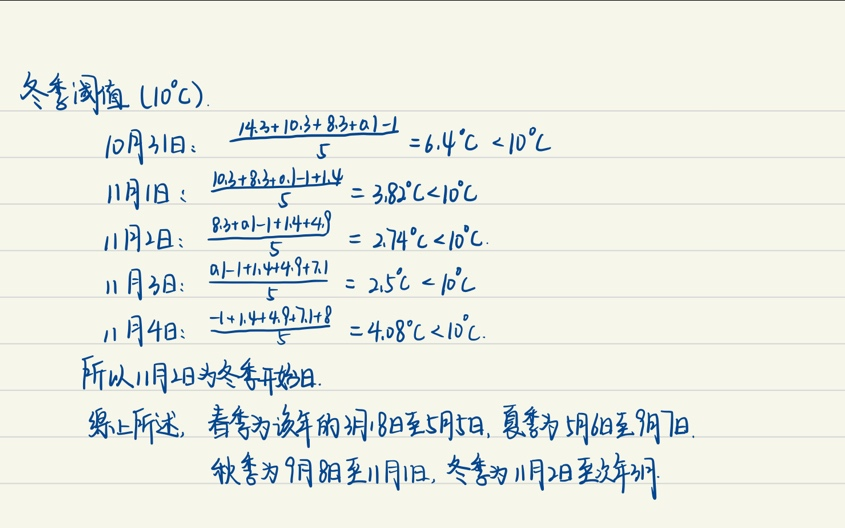 冬季阈值 (10°C).
10月31日: (14.3+10.3+8.3+0.1-1)/5 =6.4°C <10°C
11月1日: (10.3+8.3+0.1-1+1.4)/5 = 3.82°C<10°C
11月2日: (8.3+0.1-1+1.4+4.9)/5 = 2.74°C<10°C.
11月3日: (0.1-1+1.4+4.9+7.1)/5 = 2.5°C <10°C
11月4日: (-1+1.4+4.9+7.1+8)/5 =4.08°C<10°C.
所以11月2日为冬季开始日.
综上所述, 春季为该年的3月18日至5月5日, 夏季为5月6日至9月7日.
秋季为9月8日至11月1日, 冬季为11月2日至次年3月.